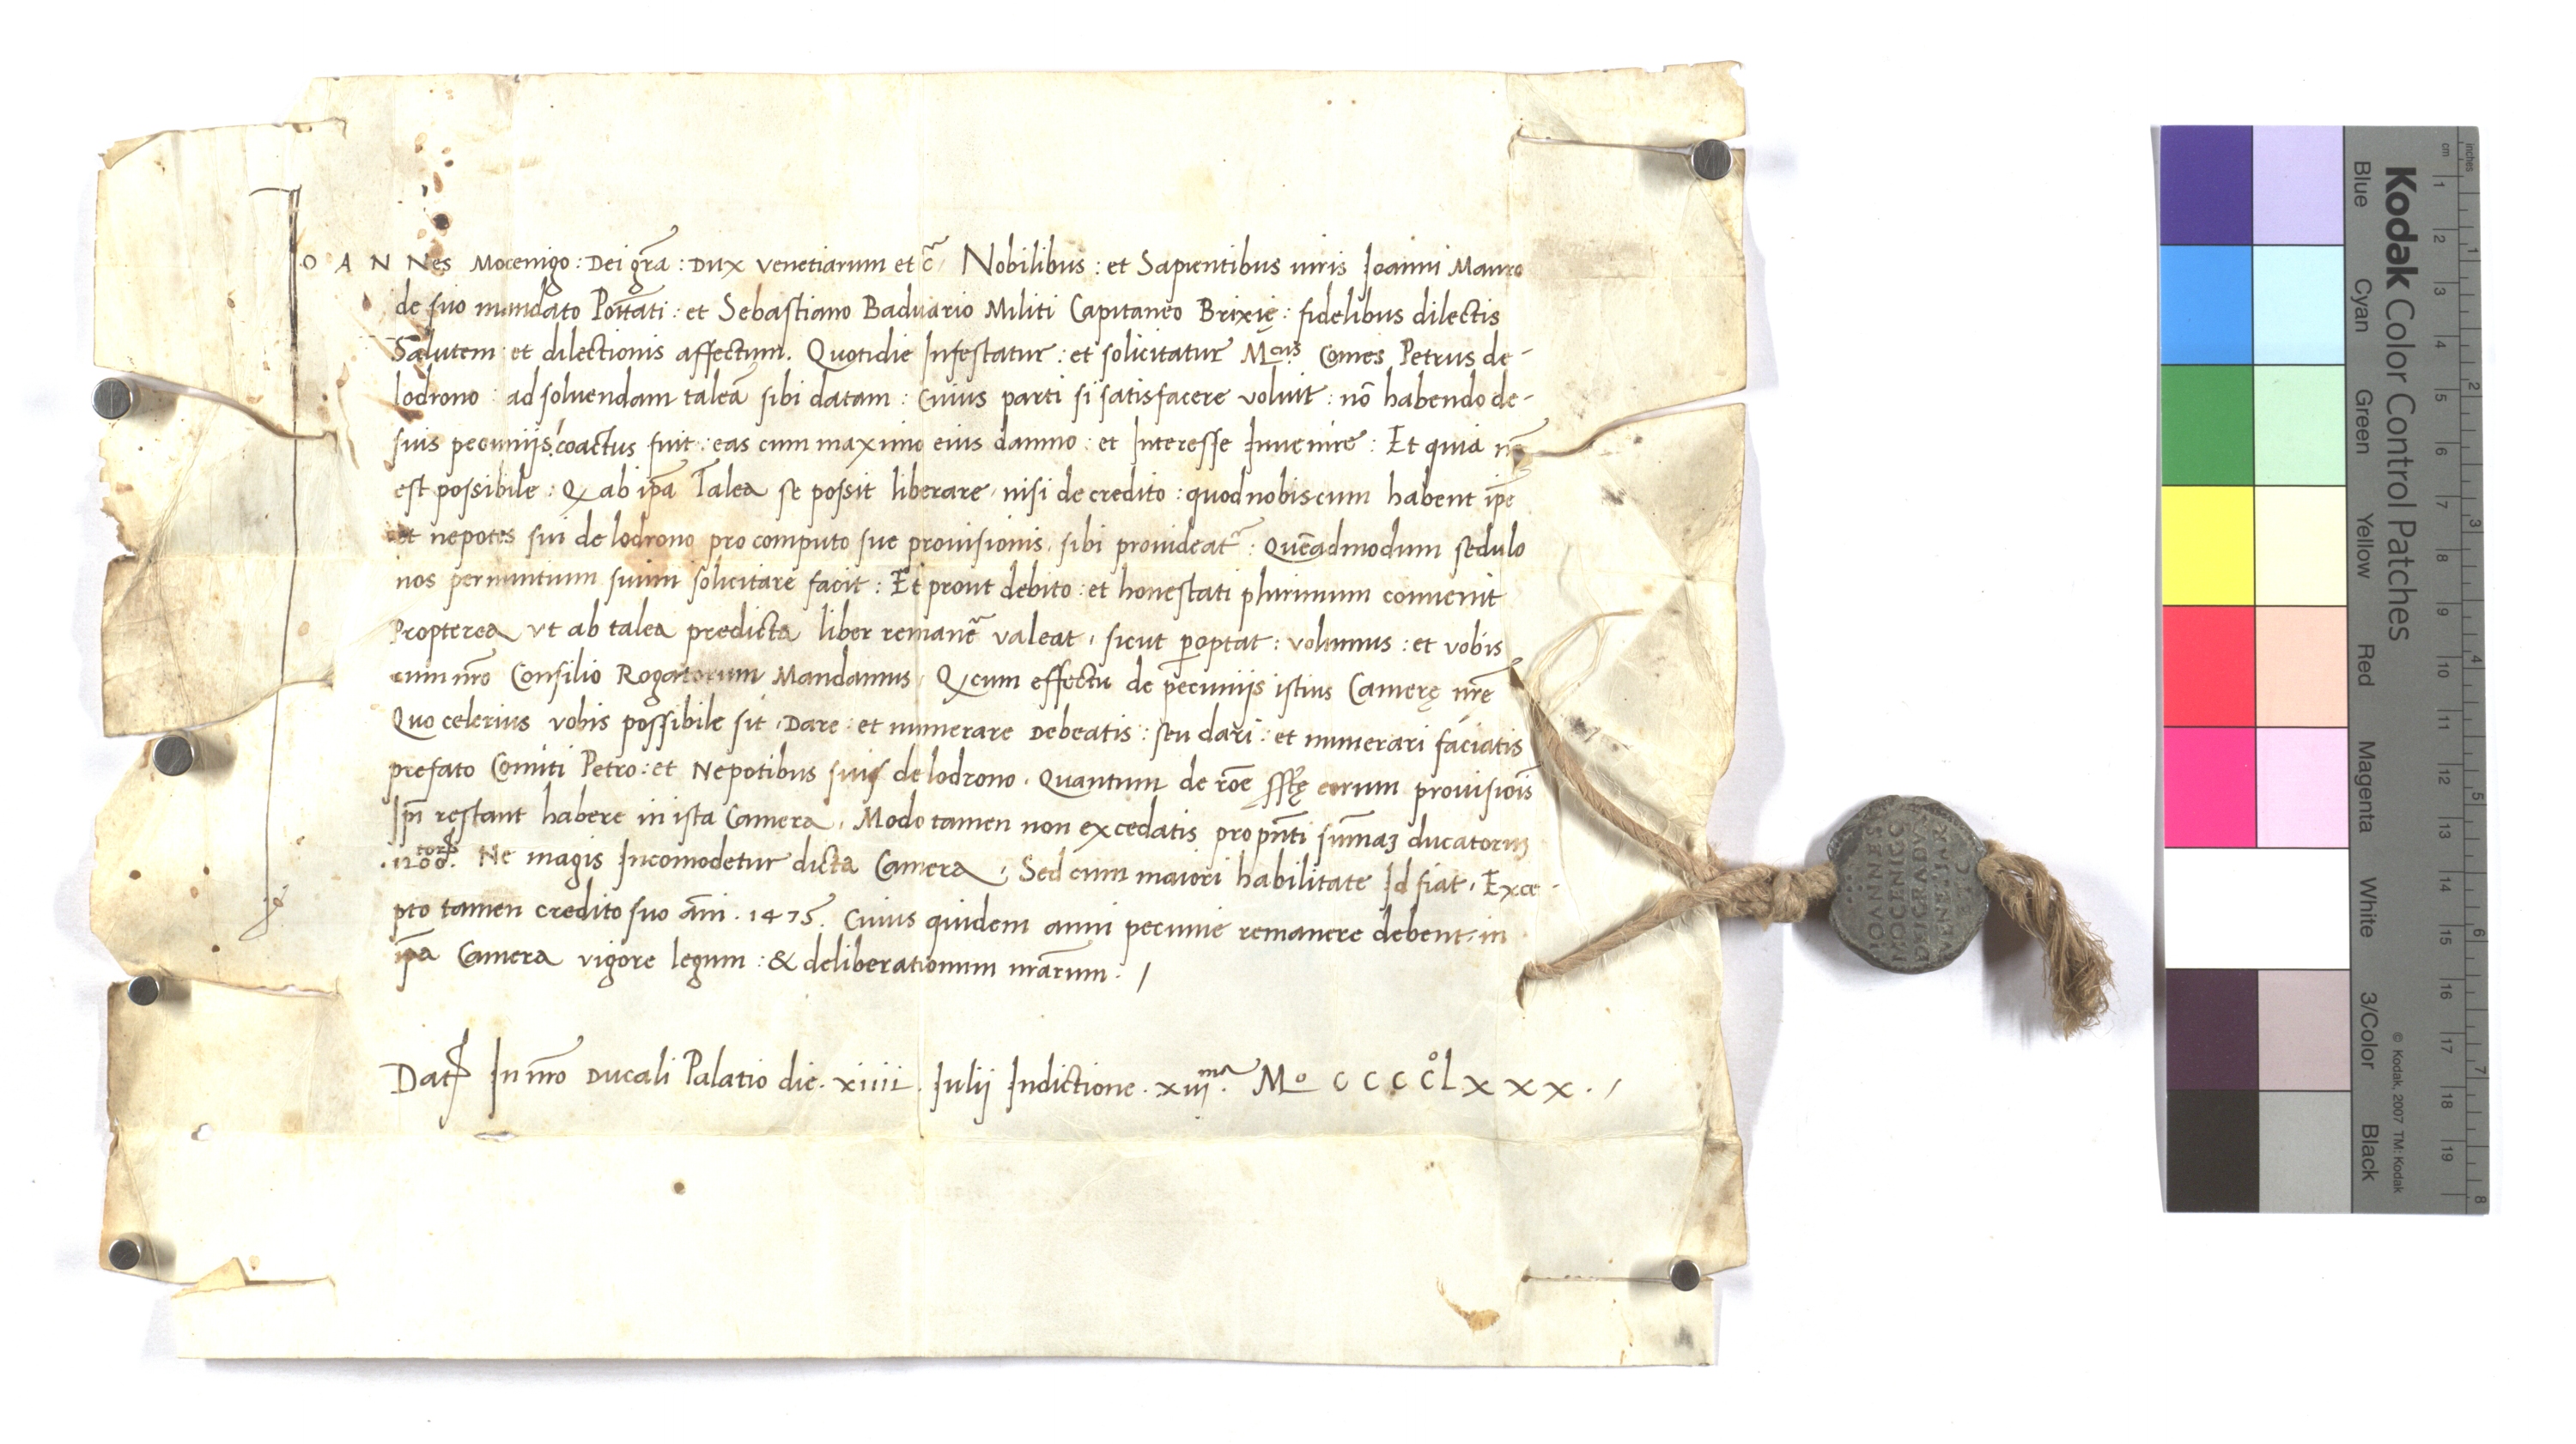 IOANNes Mocenigo: Dei gr̄a: Dux Venetiarum et c̄. Nobilibus: et Sapientibus uiris Ioanni Mauro
de suo mandato Pot̄tati: et Sebastiano Baduario Militi Capitaneo Brixię: fidelibus dilectis
Salutem et dilectionis affectum. Quotidie Infestatur: et solicitatur M.cus Comes Petrus de-
lodrono: ad soluendam taleā sibi datam: Cuius parti si satisfacere voluit: nō habendo de-
suis pecuniis: coactus fuit: eas cum maximo eius damno: et Interesse Inuenire: Et quia nō
est possibile: Q ab ip̄a Talea se possit liberare, nisi de credito: quod nobiscum habent ip̄e
et nepotes sui de lodrono pro computo sue prouisionis, sibi prouideat̄: Quēadmodum sedulo
nos per nuntium suum solicitare facit: Et prout debito: et honestati plurimum conuenit
Propterea vt ab talea predicta liber remanē valeat, sicut p̄optat: volumus: et vobis
cum nr̄o Consilio Rogatorum Mandamus, Q cum effectu de pecuniis istius Camerę nr̄e
Quo celerius vobis possibile sit, Dare: et numerare Debeatis: seu dari: et numerari faciatis
prefato Comiti Petro: et Nepotibus suis de lodrono. Quantum de rōe eorum prouisiōis
Ip̄i restant habere in ista Camera, Modo tamen non excedatis pro pn̄ti sum̄aꝫ ducatoruꝫ
.1200.torꝝ Ne magis Incomodetur dicta Camera, Sed cum maiori habilitate Id fiat, Exce-
pto tamen credito suo an̄i. 1475. Cuius quidem anni pecunie remanere debent, in
ip̄a Camera vigore legum: & deliberationum nr̄arum. /
Datꝭ In nr̄o Ducali Palatio die. xiiii. Iulii Indictione. xiij.ma Mo CCCC̊Lxxx. /
IOANNES
MOCENIGO
DEI GRA DVX
VENETIAR
ETC
Kodak Color Control Patches
Blue Cyan Green Yellow Red Magenta White 3/Color Black
© Kodak, 2007 TM: Kodak
cm 1 2 3 4 5 6 7 8 9 10 11 12 13 14 15 16 17 18 19
inches 1 2 3 4 5 6 7 8